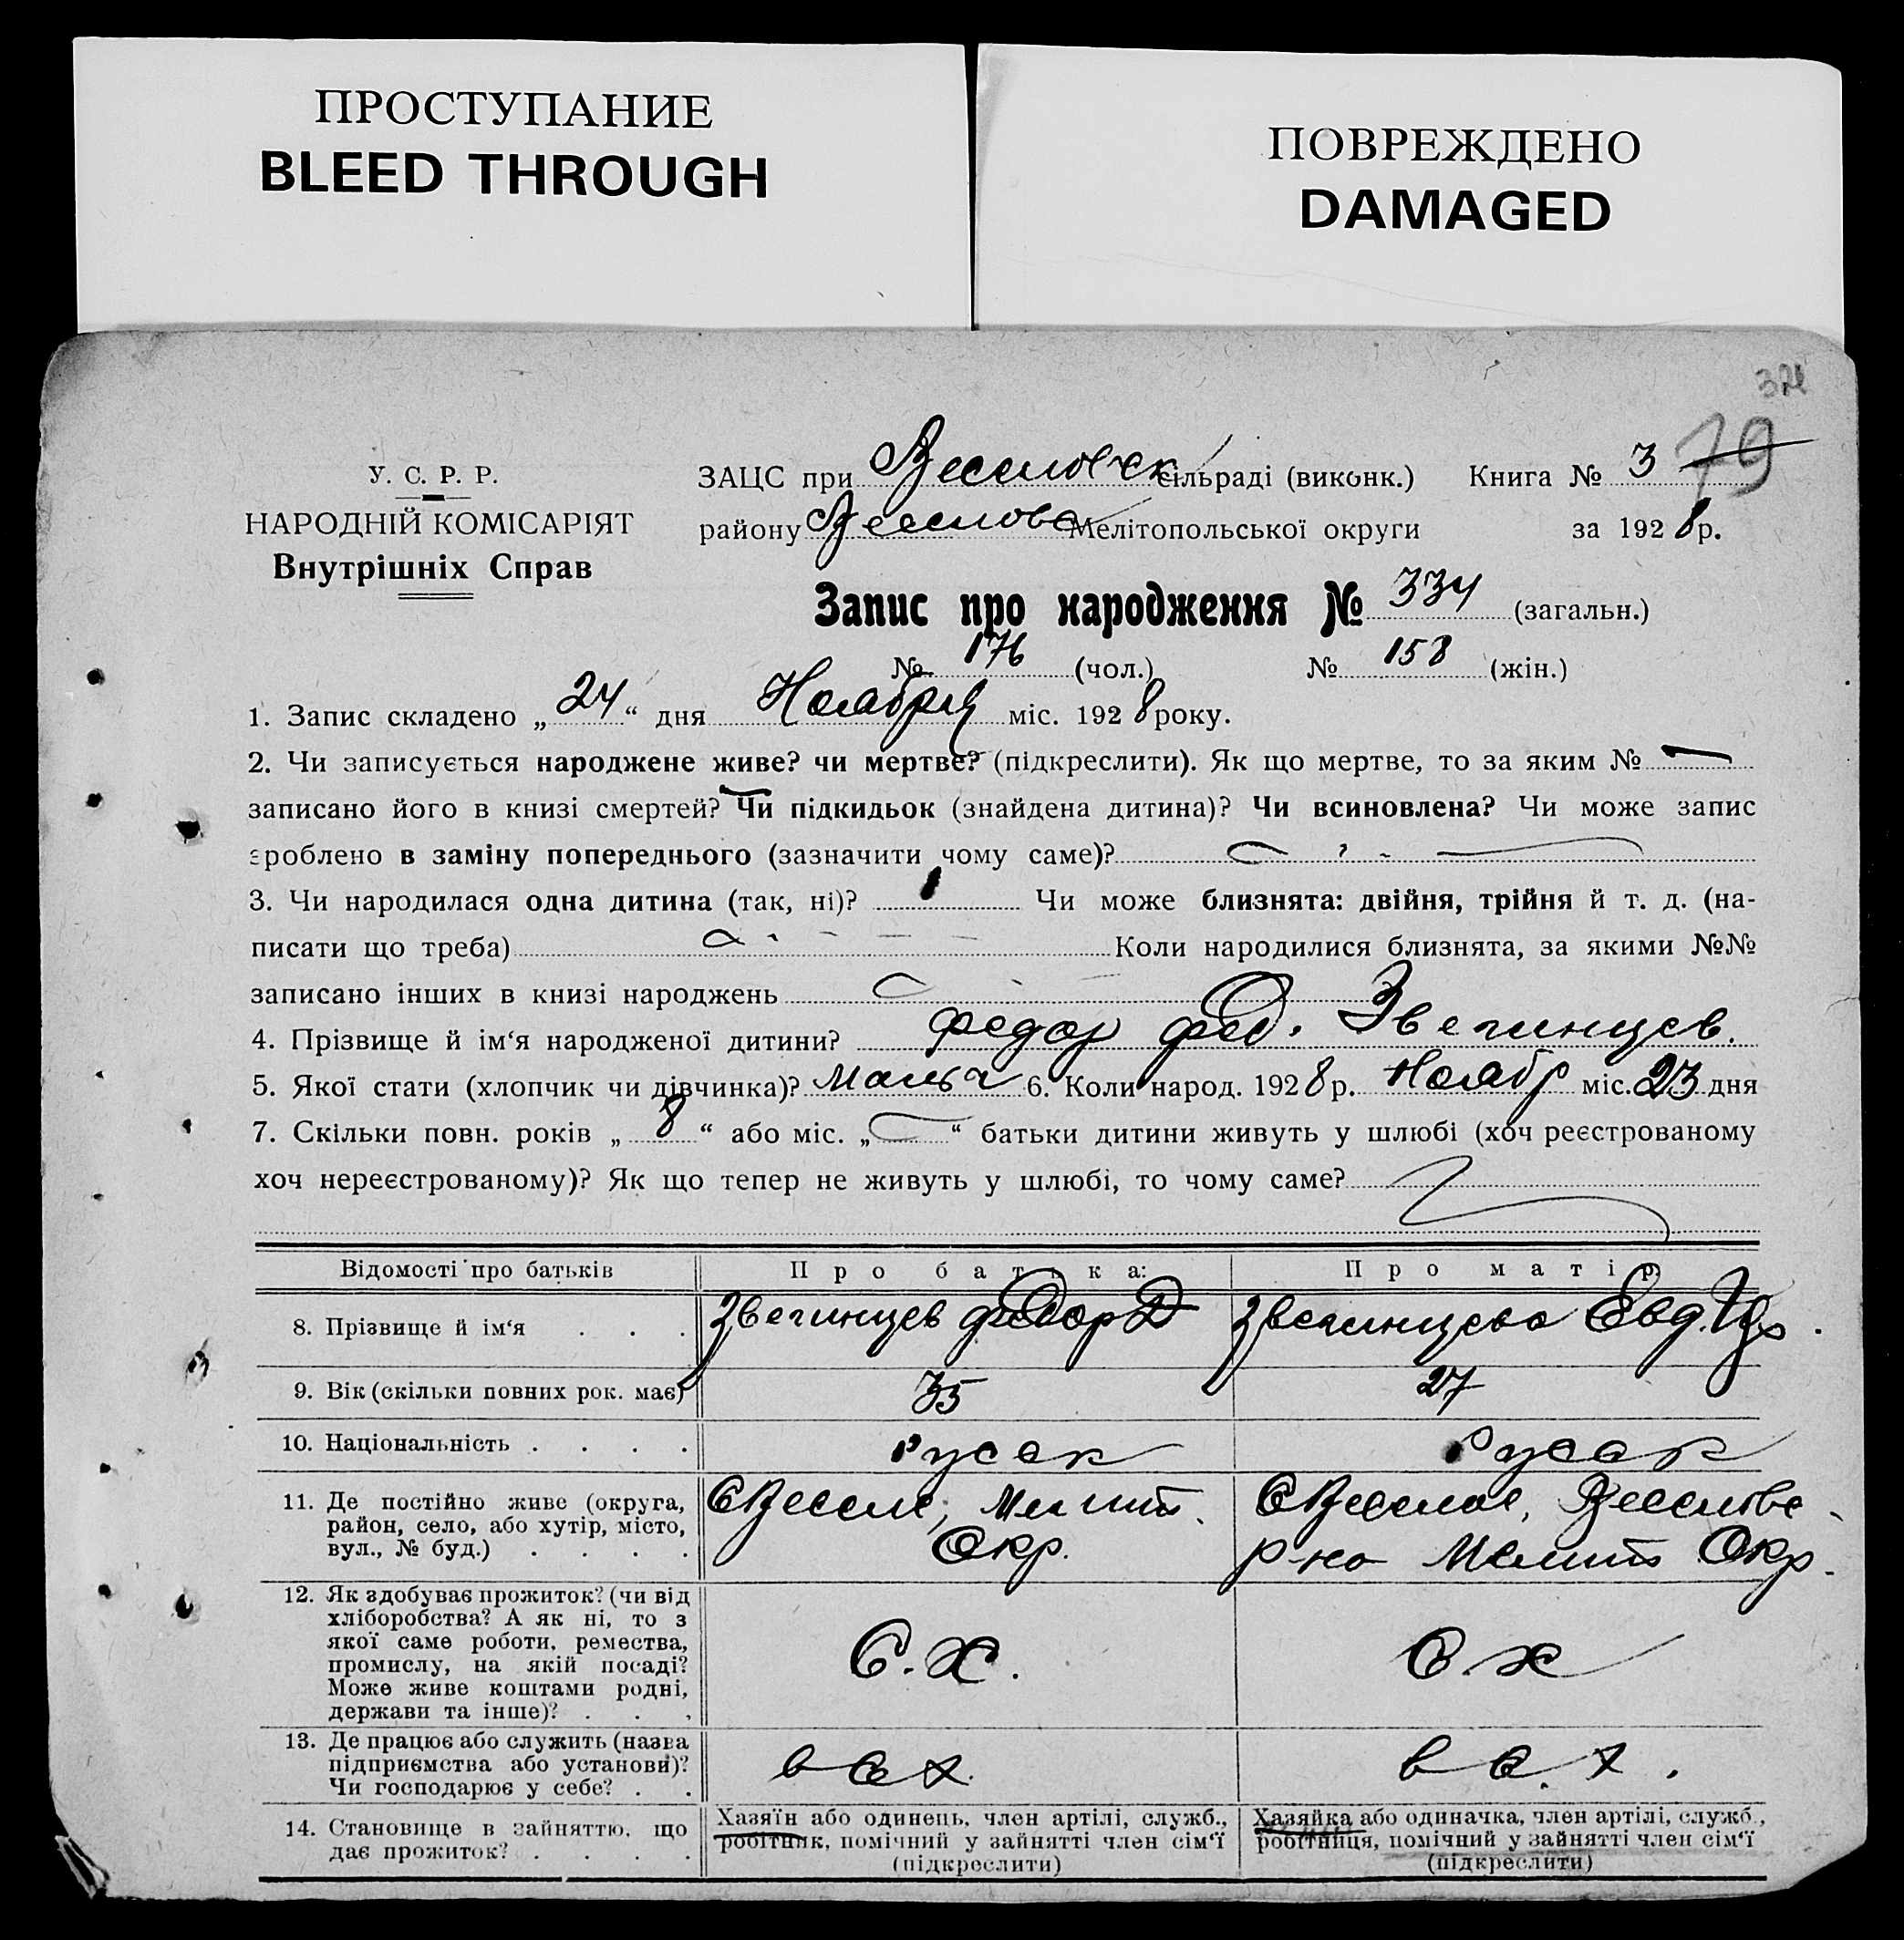 ПРОСТУПАНИЕ
BLEED THROUGH
ПОВРЕЖДЕНО
DAMAGED
79
У. С. Р. Р.
НАРОДНІЙ КОМІСАРІЯТ
Внутрішніх Справ
ЗАЦС при Веселовск сільраді (виконк.) Книга № 3
району Веселовс Мелітопольської округи за 1928 р.
Запис про народження № 334 (загальн.)
№ 176 (чол.) № 158 (жін.)
1. Запис складено „24“ дня Ноября міс. 1928 року.
2. Чи записується народжене живе? чи мертве? (підкреслити). Як що мертве, то за яким №
записано його в книзі смертей? Чи підкидьок (знайдена дитина)? Чи всиновлена? Чи може запис
зроблено в заміну попереднього (зазначити чому саме)?
3. Чи народилася одна дитина (так, ні)? 1 Чи може близнята: двійня, трійня й т. д. (на-
писати що треба) Коли народилися близнята, за якими №№
записано інших в книзі народжень
4. Прізвище й ім‘я народженої дитини? Федор Фед. Звегинцев.
5. Якої стати (хлопчик чи дівчинка)? Мальч 6. Коли народ. 1928 р. Ноябр міс. 23 дня
7. Скільки повн. років „8“ або міс. „ “ батьки дитини живуть у шлюбі (хоч реєстрованому
хоч нереєстрованому)? Як що тепер не живуть у шлюбі, то чому саме?
Відомості про батьків
Про батька:
Про матір
8. Прізвище й ім‘я . . .
Звегинцев Федор Д
Звегинцева Евд.
9. Вік (скільки повних рок. має)
35
27
10. Національність . . . .
Русск
Русск
11. Де постійно живе (округа,
район, село, або хутір, місто,
вул., № буд.) . . . .
С Весели, Мелит.
Окр.
С Веселое, Веселовс
р-на Мелит Окр.
12. Як здобуває прожиток? (чи від
хліборобства? А як ні, то з
якої саме роботи, ремества,
промислу, на якій посаді?
Може живе коштами родні,
держави та інше)? . . .
С. Х.
С х
13. Де працює або служить (назва
підприємства або установи)?
Чи господарює у себе? . .
в с х.
в с. х.
14. Становище в зайняттю, що
дає прожиток? . . . .
Хазяїн або одинець, член артілі, служб.,
робітник, помічний у зайнятті член сім‘ї
(підкреслити)
Хазяйка або одиначка, член артілі, служб.,
робітниця, помічний у зайнятті член сім‘ї
(підкреслити)